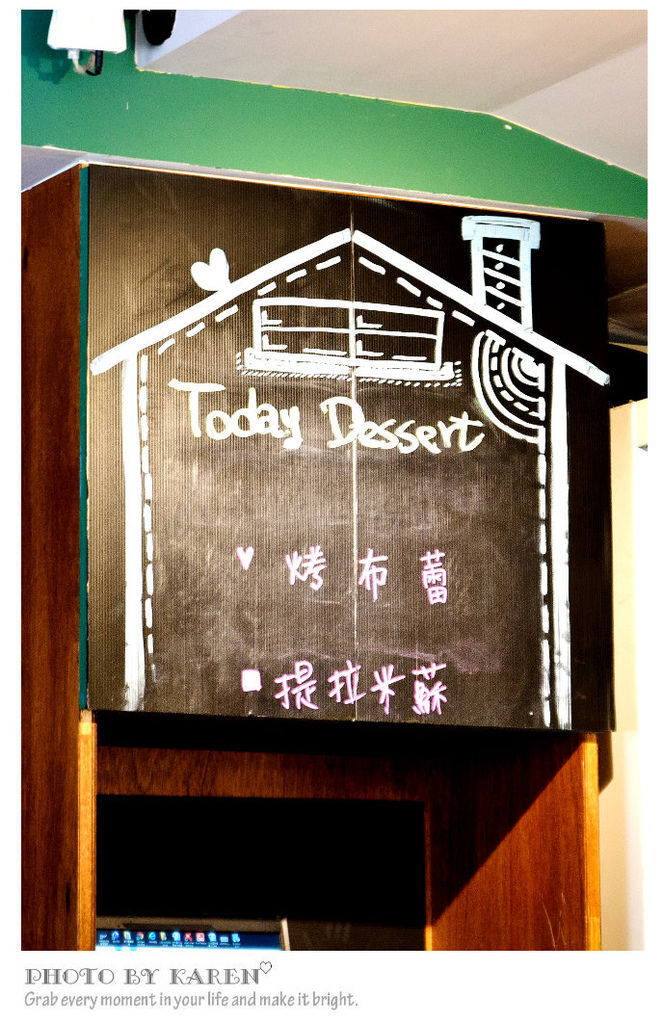 Today Dessert
♥ 烤布蕾
■ 提拉米蘇
PHOTO BY KAREN♡
Grab every moment in your life and make it bright.